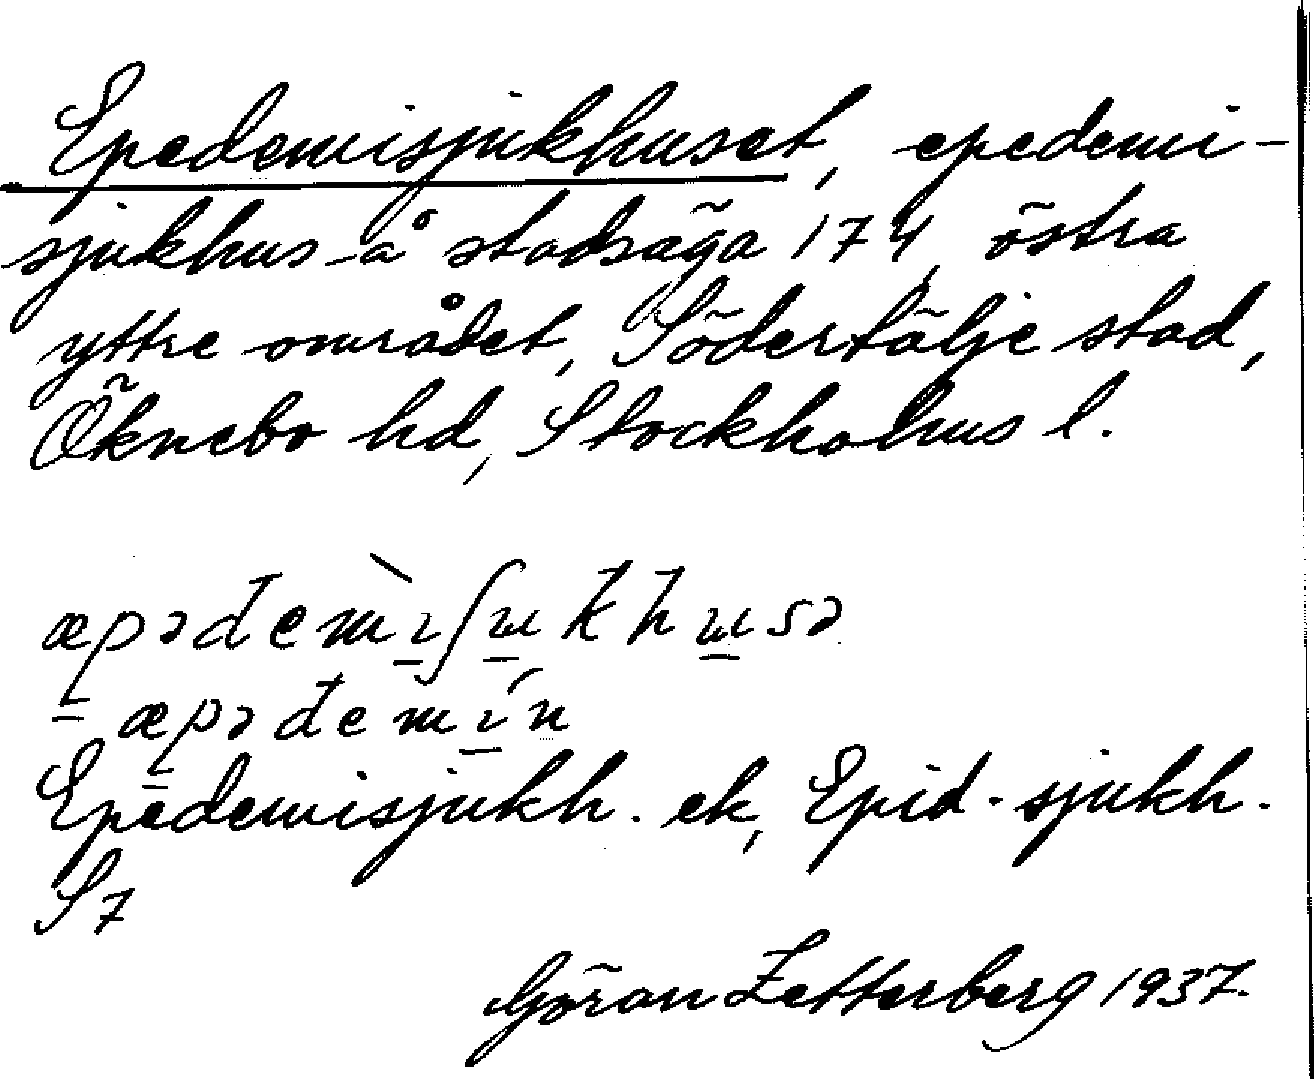 Epedemisjukhuset, epedemi-
sjukhus å stadsäga 174, östra
yttre området, Södertälje stad,
Öknebo hd, Stockholms l.
æpədemìʃukhusə
æpədemín
Epedemisjukh. ek, Epid. sjukh.
S7
Göran Zetterberg 1937.